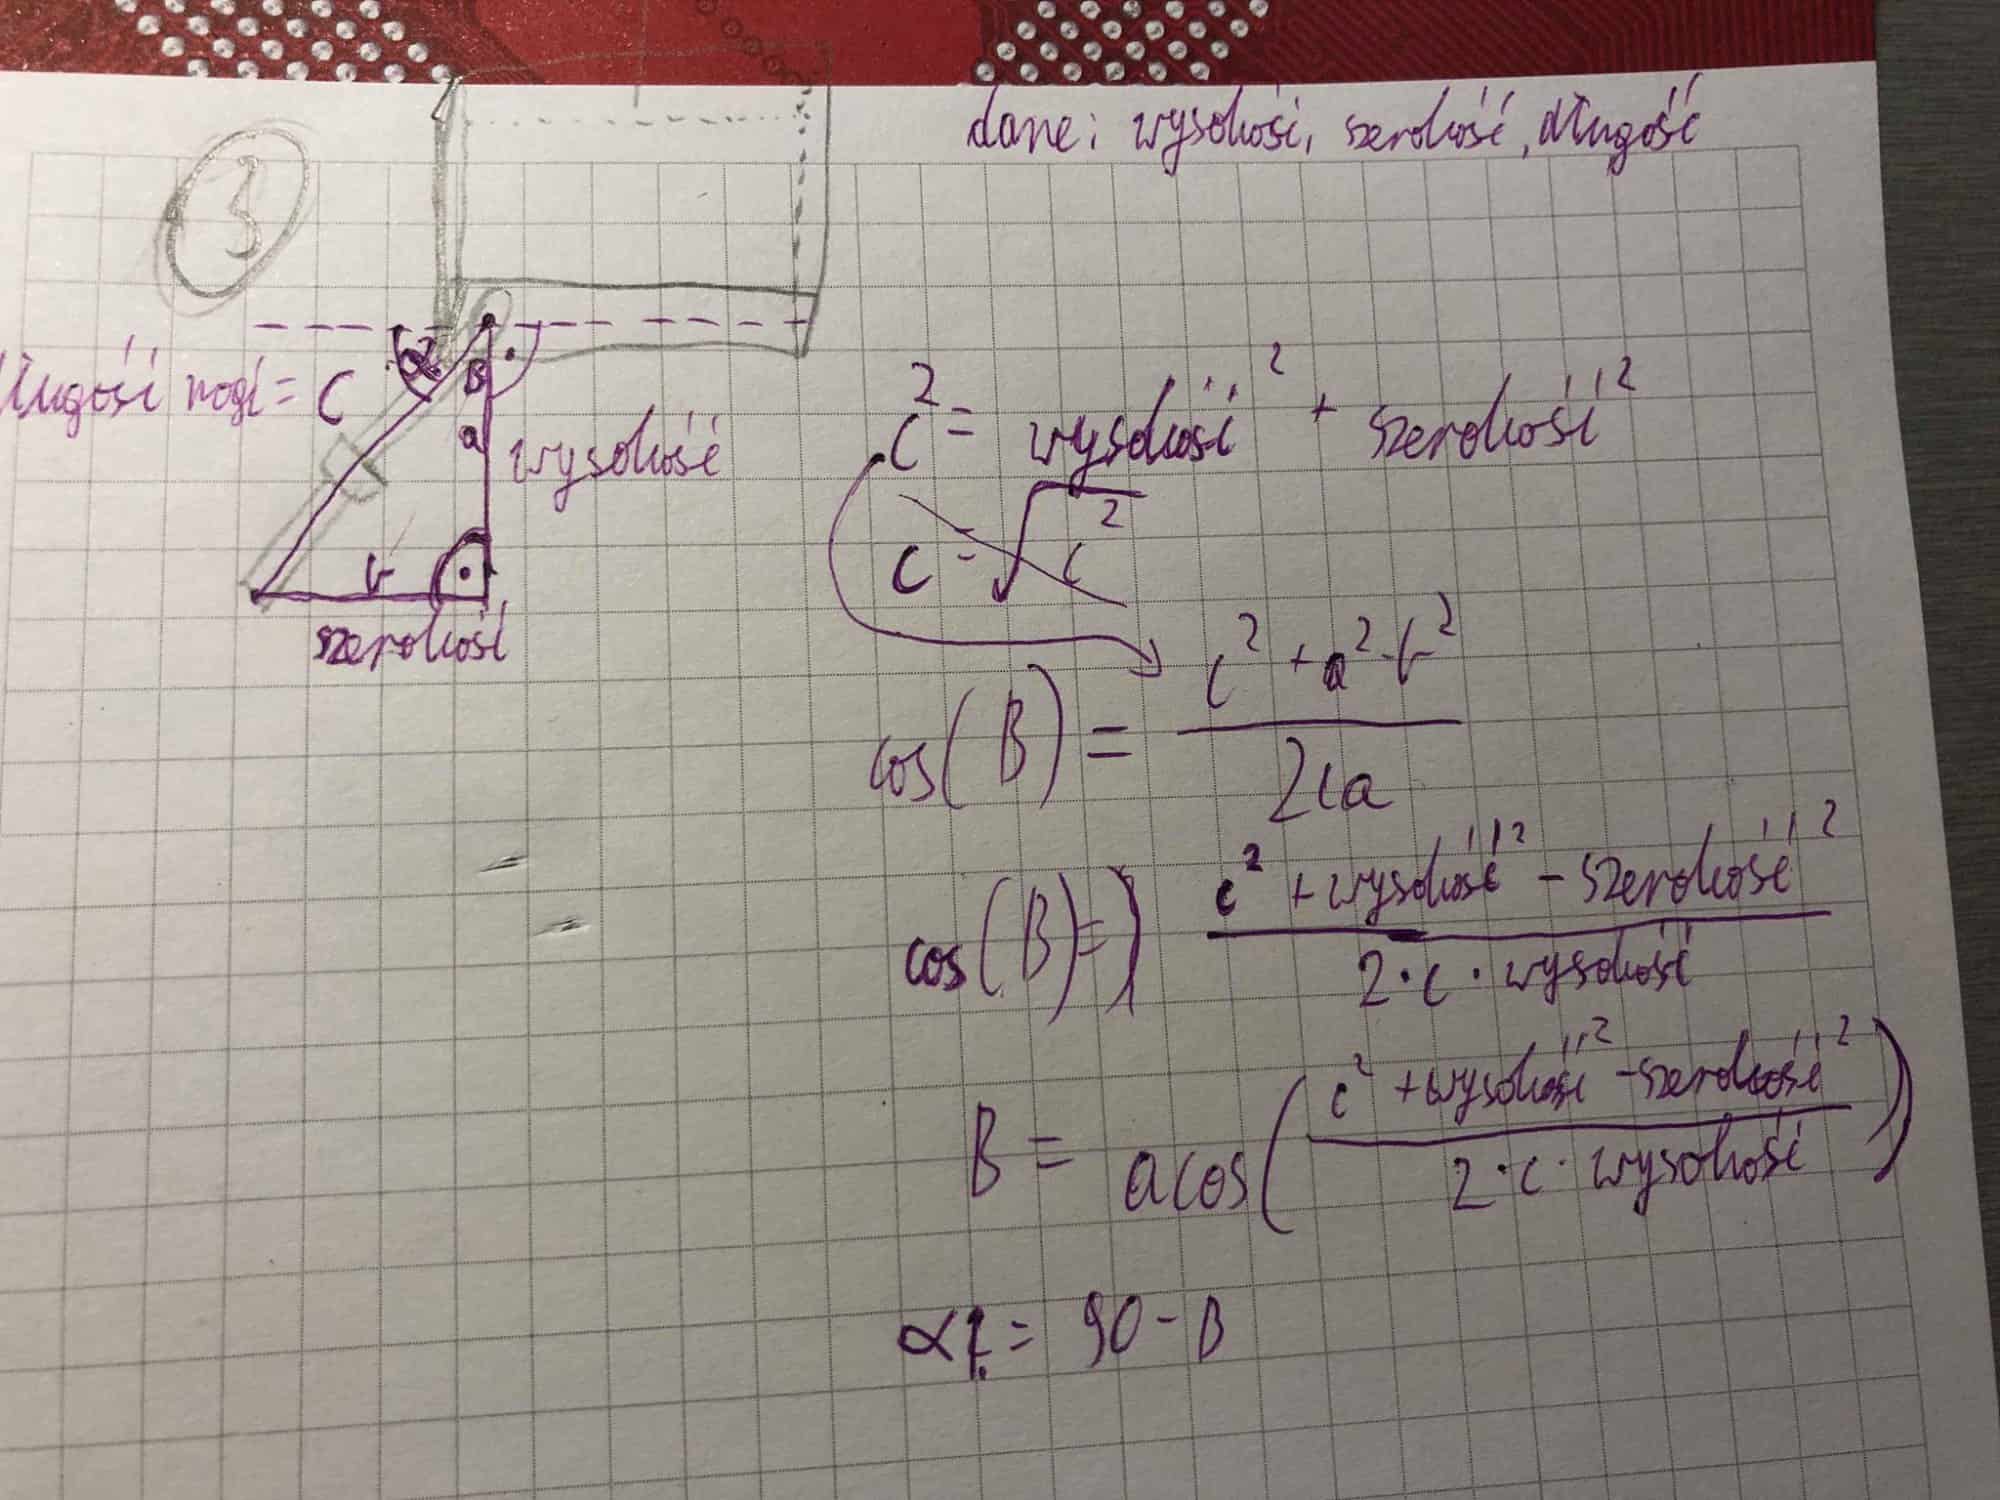 dane: wysokość, szerokość, długość
3
długość nogi = c
α
B
a
wysokość
b
szerokość
c² = wysokość² + szerokość²
c = √c²
cos(B) = c² + a² - b² / 2ca
cos(B) = c² + wysokość² - szerokość² / 2 · c · wysokość
B = acos(c² + wysokość² - szerokość² / 2 · c · wysokość)
α = 90 - B